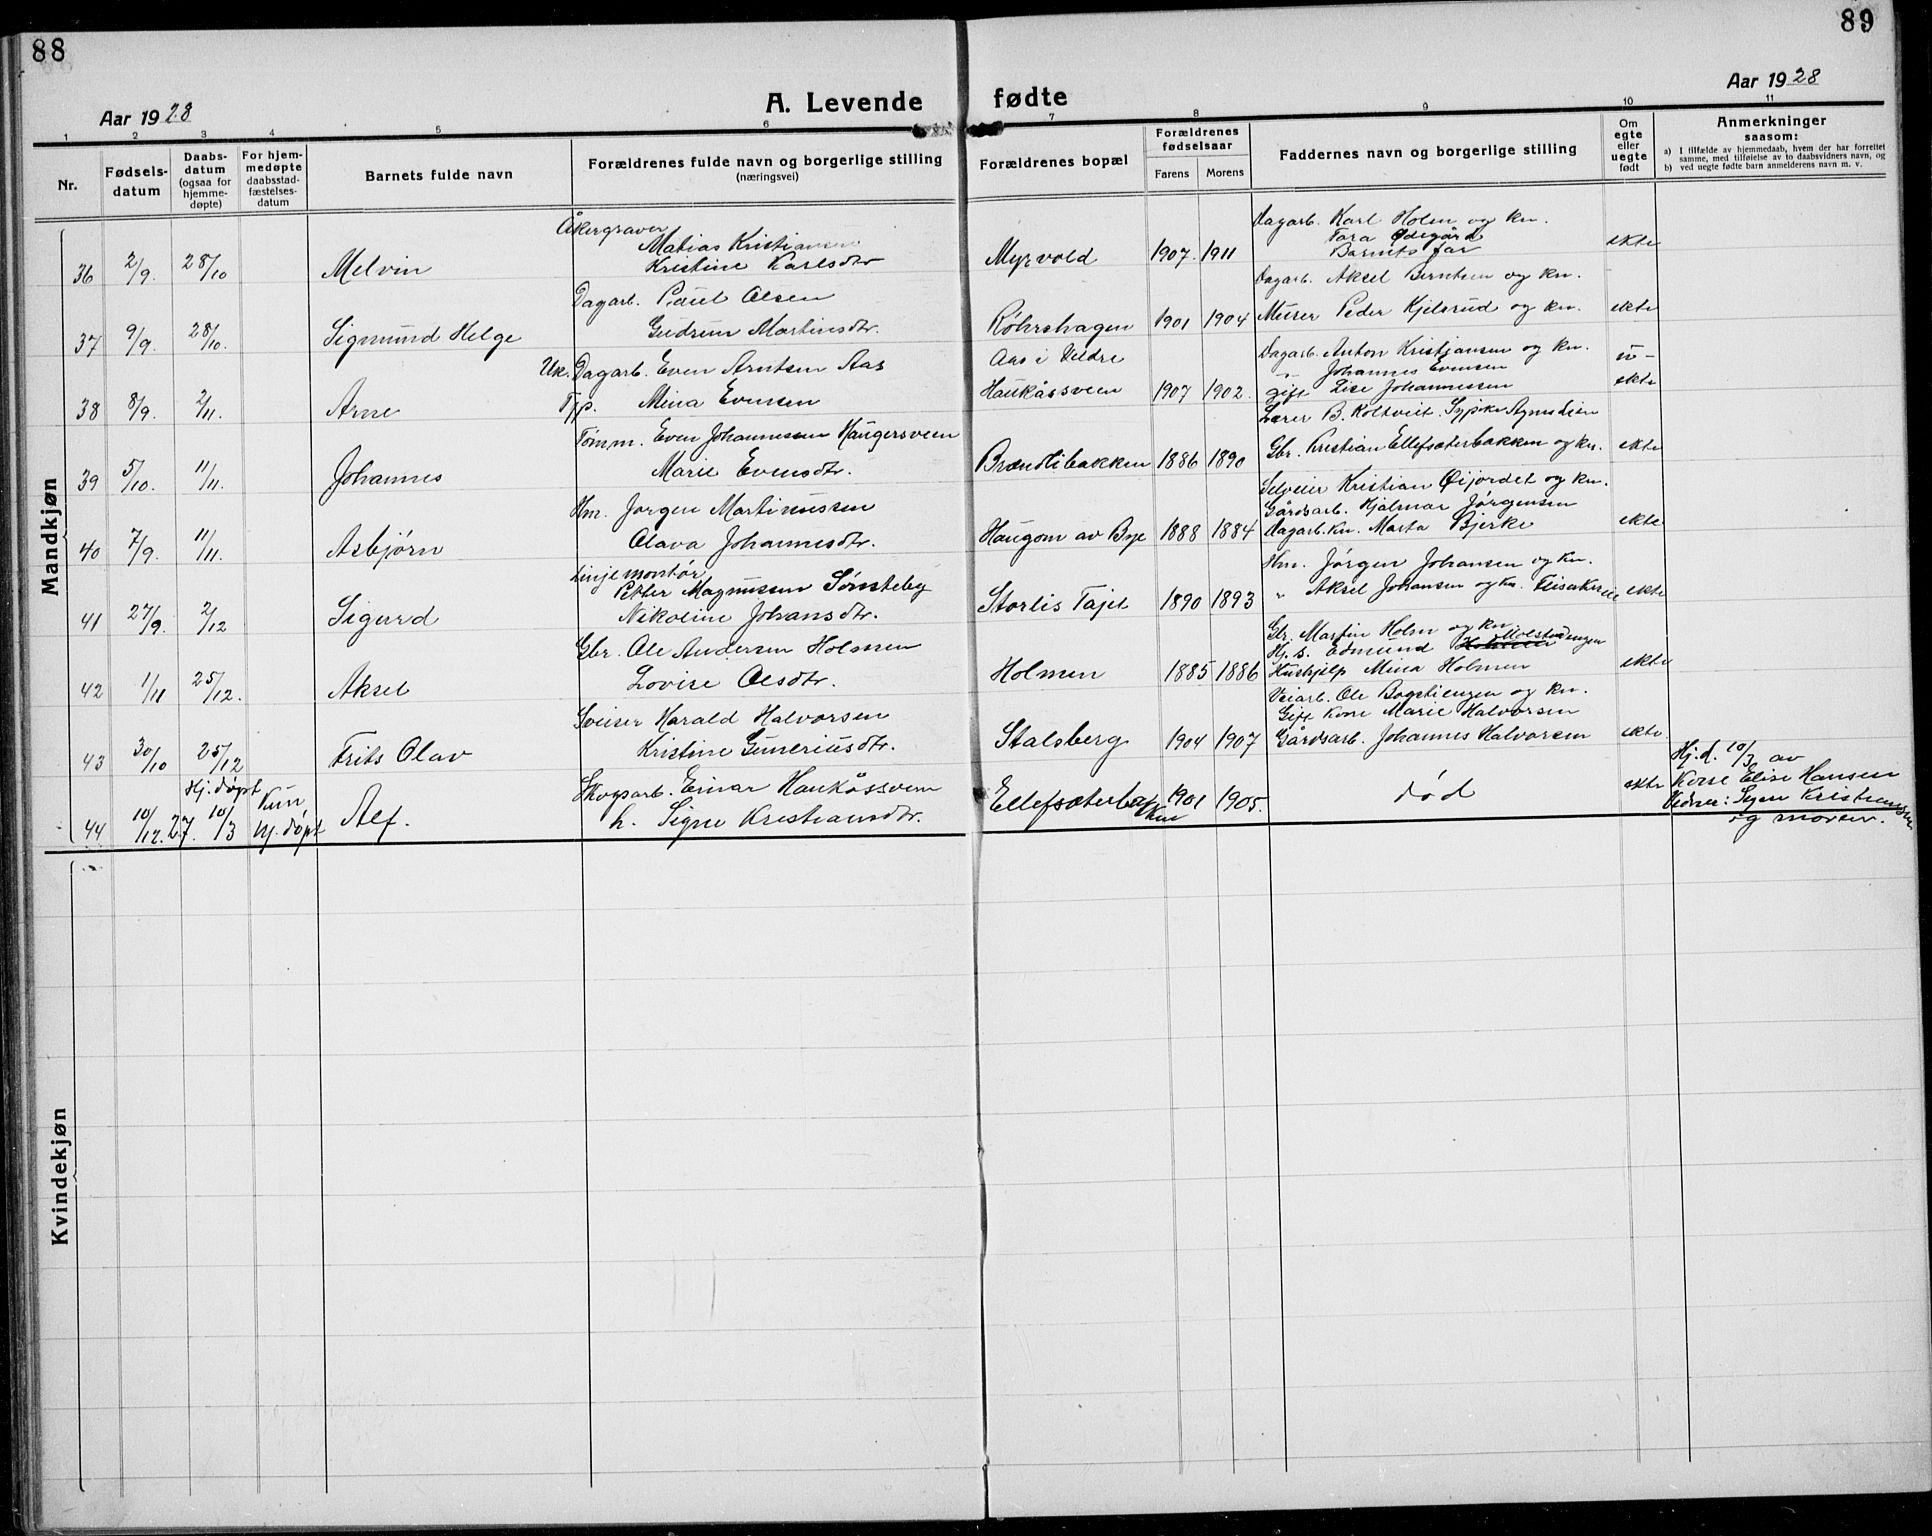 88
89
Aar 1928
A. Levende fødte
Aar 1928
1 2 3 4 5 6 7 8 9 10 11
Nr.
Fødsels-
datum
Daabs-
datum
(ogsaa for
hjemme-
døpte)
For hjem-
medøpte
daabsstad-
fæstelses-
datum
Barnets fulde navn
Forældrenes fulde navn og borgerlige stilling
(næringsvei)
Forældrenes bopæl
Forældrenes
fødselsaar
Farens Morens
Faddernes navn og borgerlige stilling
Om
egte
eller
uegte
født
Anmerkninger
saasom:
a) I tilfælde av hjemmedaab, hvem der har forrettet
samme, med tilføielse av to daabsvidners navn, og
b) ved uegte fødte barn anmelderens navn m. v.
Mandkjøn
36 2/9. 28/10 Melvin
Åkergraver
Matias Kristiansen
Kristine Karlsdtr
Myrvold 1907. 1911
Dagarb. Karl Holm og kn.
Tora Ødegård
Barnets far
ekte
37 9/9. 28/10. Sigmund Helge
Dagarb. Paul Olsen
Gudrun Martinsdtr.
Røhrshagen 1901 1904
Dagarb. Aksel Berntsen og kn.
Murer Peder Kjelsrud og kn.
ekte
38 8/9. 2/11. Arne
Uk. Dagarb. Even Arntsen Aas
Tjp. Mina Evensen
Aas i Veldre
Haukåssveen 1907 1902.
Dagarb. Anton Kristjansen og kn.
" Johannes Evensen
gift Lise Johannessen
Lærer B. Koltveit. Sypike Agnes Lien
u-
ekte
39 5/10. 11/11. Johannes
Tømm. Even Johannessen Haugersveen
Marie Evensdtr.
Brændlibakken 1886 1890
Gbr. Kristian Ellefsæterbakken og kn.
ekte
40 7/9. 11/11. Asbjørn
Hm. Jørgen Martinussen
Olava Johannesdtr.
Haugom av Bye 1888 1884
Selveier Kristian Øijordet og kn.
Gårdsarb. Hjalmar Jørgensen
Dagarb.kn. Marta Bjerke
ekte
41 27/9. 2/12 Sigurd
Linjemontør
Petter Magnussen Sønsteby
Nikoline Johansdtr.
Storlis Tajet 1890 1893
Hm. Jørgen Johansen og kn.
" Aksel Johansen og kn.
ekte
42 1/11 25/12. Aksel
Gbr. Ole Andersen Holmen
Lovise Olsdtr.
Holmen 1885 1886
Gbr. Martin Holm og kn.
Hj. s. Edmund Molstadengen
Hushjelp Mina Holmen
ekte
43 30/10 25/12 Frits Olav
Sveiser Harald Halvorsen
Kristine Guneriusdtr.
Stalsberg 1904 1907
Veiarb. Ole Bagstiengen og kn.
Gift kone Marie Halvorsen
Gårdsarb. Johannes Halvorsen
ekte.
44 10/12. 27. Hj. døpt 10/3 Kun hj. døpt Alf.
Skogsarb. Einar Haukåssveen
h. Signe Kristiansdtr.
Ellefsæterbakken 1901 1905.
død
ekte
Hj.d. 10/3 av
Kone Elise Hansen
Vidner: Signe Kristiansen
og moren.
Kvindekjøn